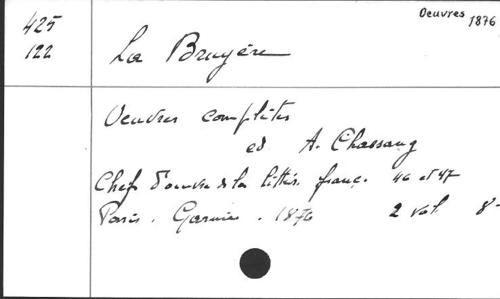 Oeuvres 1876
425
122
La Bruyère
Oeuvres complètes
ed A. Chassang
Chefs d'oeuvre de la littér. franç. 46 et 47
Paris. Garnier. 1876 2 vol. 8°